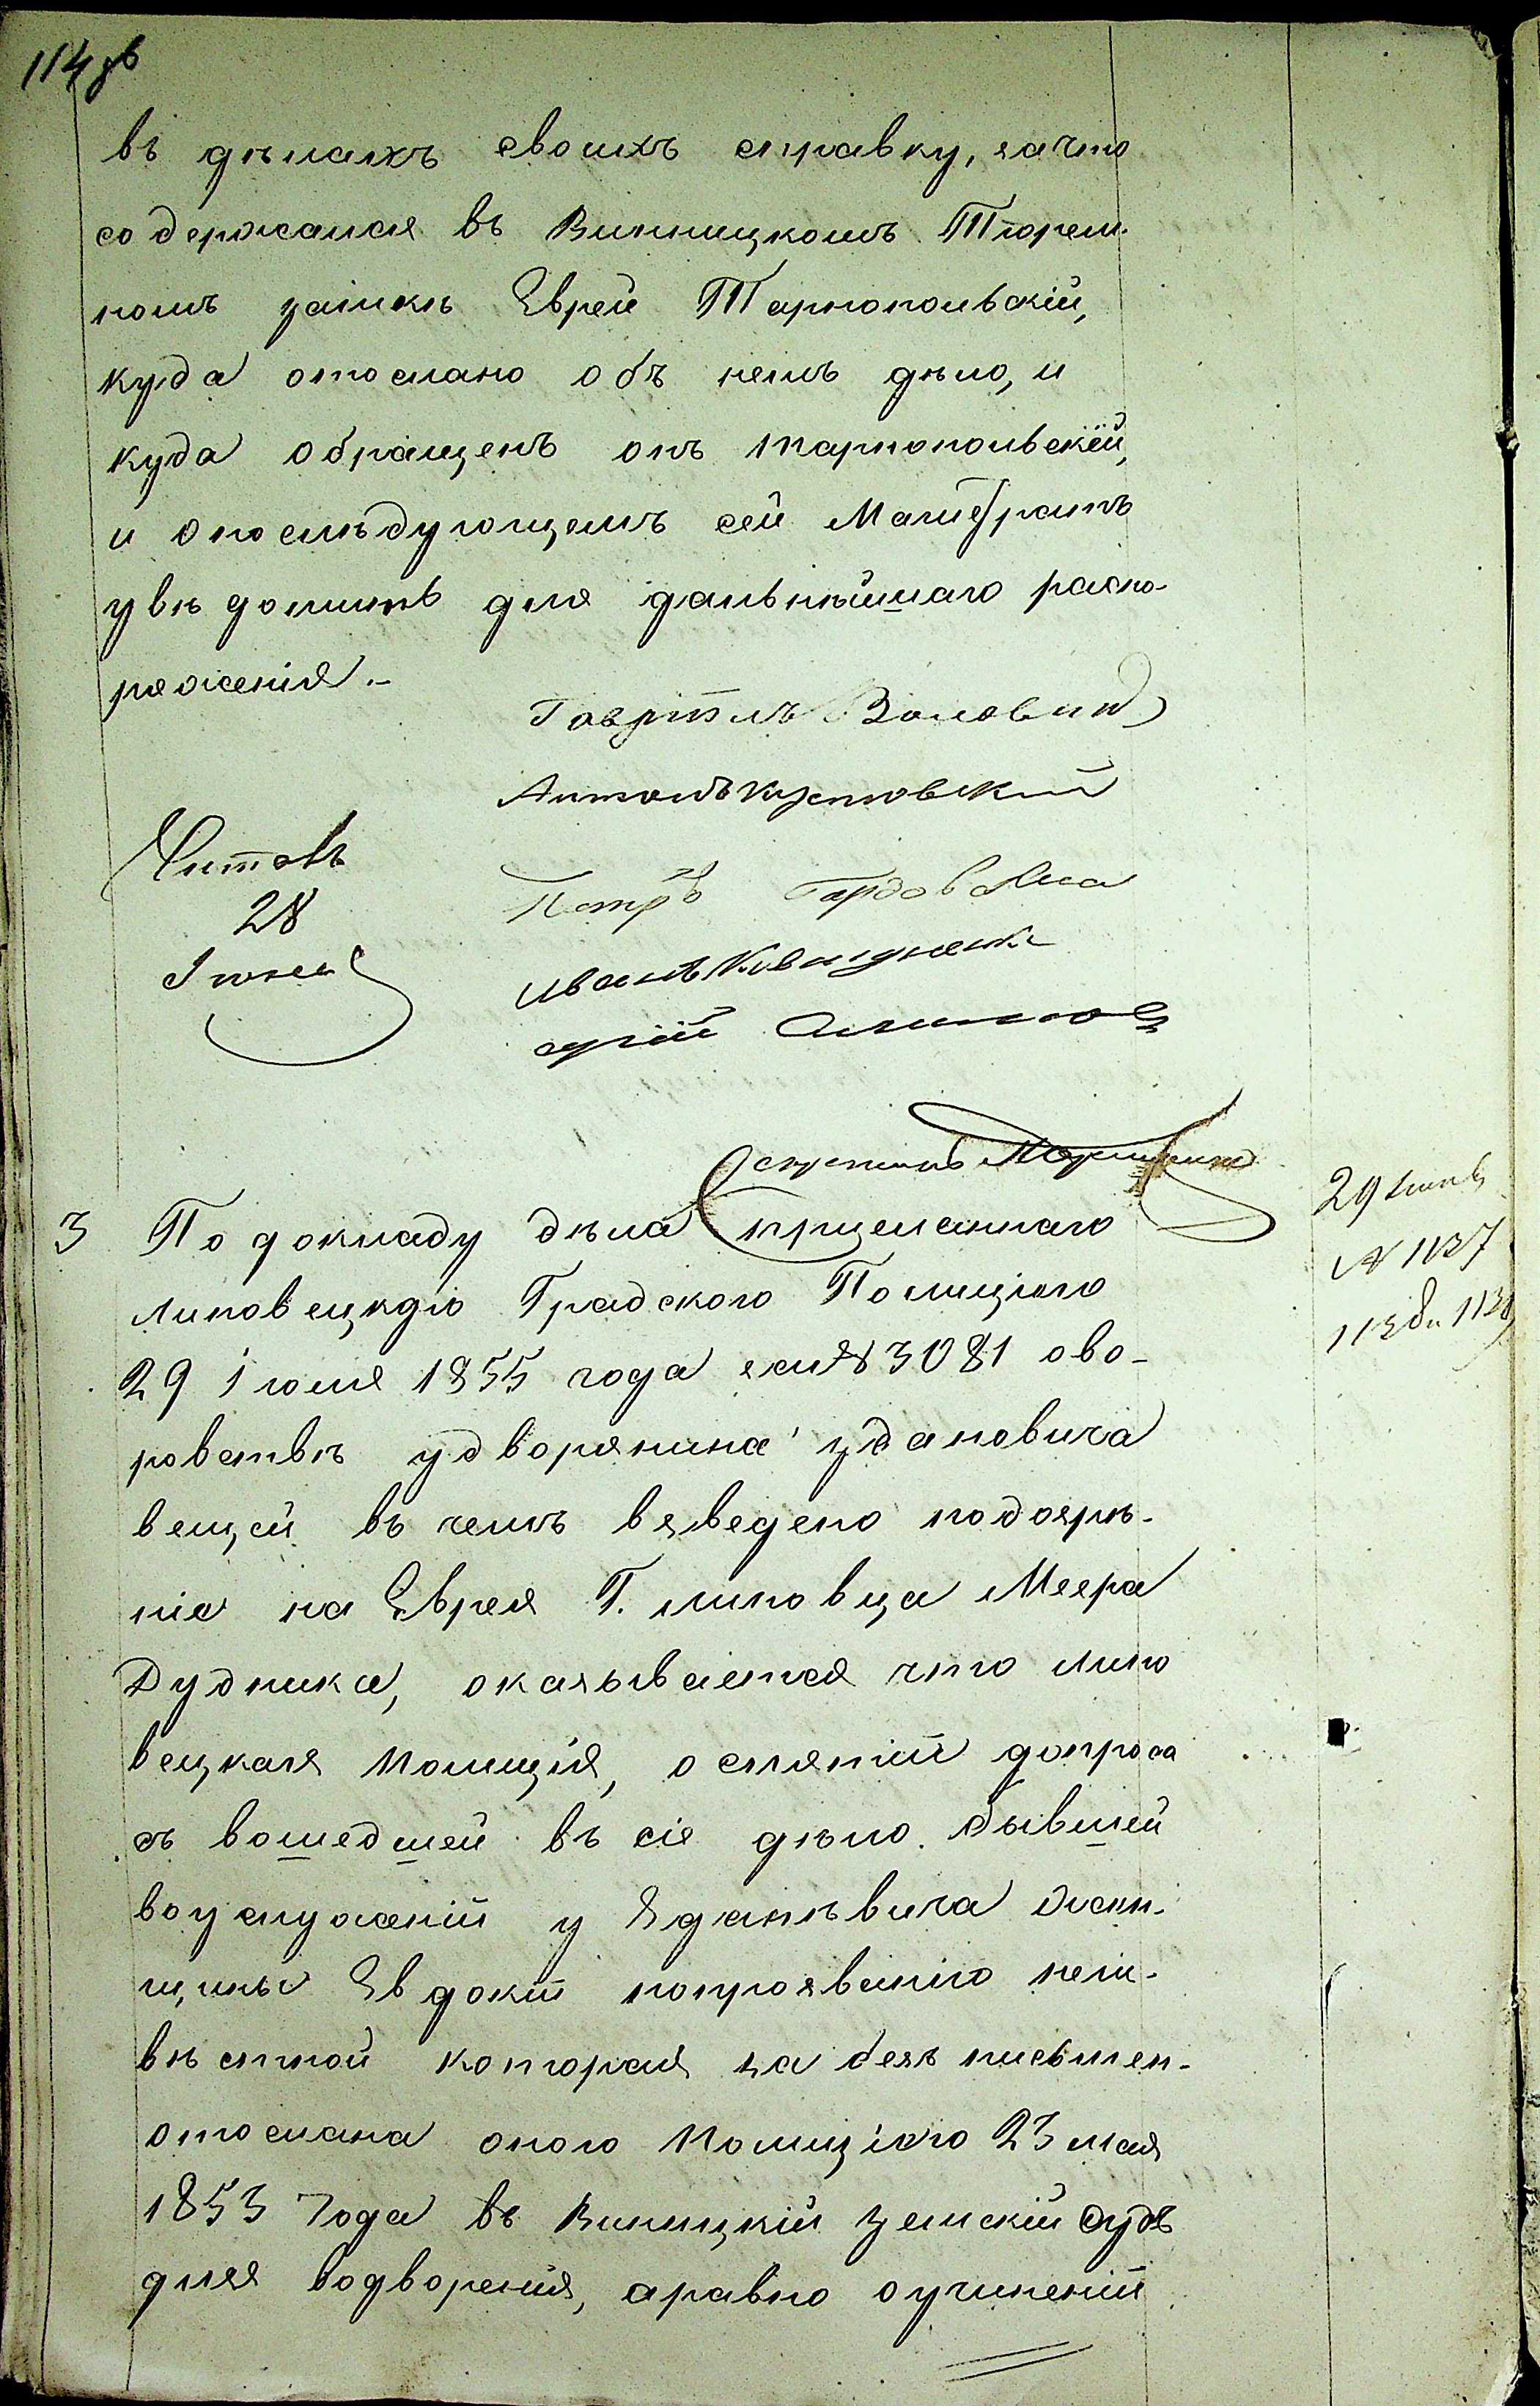 114 об
въ дѣлахъ своихъ справку, зачто
содержался въ Винницкомъ Тюрем-
номъ замкѣ Еврей Тарнопольскій,
куда отослано объ немъ дѣло, и
куда обращенъ онъ тарнопольскій,
и опослѣдующемъ сей Магистратъ
увѣдомить для дальнѣйшаго распо-
ряженія.-
Гавріилъ
Антонъ
Петръ
Иванъ
Читалъ
28
Іюня
29 Іюня
№ 1137
1138 и 1139
3 По докладу дѣла присланнаго
липовецкою Градскою Полиціею
29 Іюля 1855 года за № 3081 ово-
ровствѣ удворянина Ждановича
вещей въ чемъ взведено подозрѣ-
ніе на Еврея Г. липовца Меера
Дудника, оказывается что липо
вецкая Полиція, о снятіи допроса
съ вошедшей въ сіе дѣло бывшей
воуслуженіи у Ждановича женщи-
щины Евдокіи попрозванію неиз-
вѣстной которая за безъ письмен-
отослана оною Полиціею 23 мая
1853 Года въ Виницкій земскій судъ
для водворенія, аравно оучиненіи